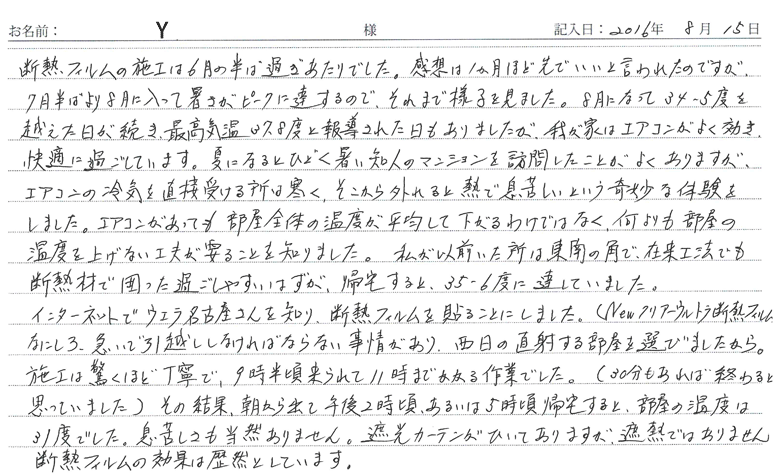 お名前： Y 様 記入日：2016年 8月 15日
断熱フィルムの施工は6月の半ば過ぎあたりでした。感想は1か月ほど先でいいと言われたのですが、
7月半ばより8月に入って暑さがピークに達するので、それまで様子を見ました。8月になって34-5度を
越えた日が続き、最高気温37.8度と報導された日もありましたが、我が家はエアコンがよく効き、
快適に過ごしています。夏になるとひどく暑い知人のマンションを訪問したことがよくありますが、
エアコンの冷気を直接受ける所は寒く、そこから外れると熱で息苦しいという奇妙な体験を
しました。エアコンがあっても部屋全体の温度が平均して下がるわけではなく、何よりも部屋の
温度を上げない工夫が要ることを知りました。 私が以前いた所は東南の角で、在来工法でも
断熱材で囲った過ごしやすいはずが、帰宅すると、35-6度に達していました。
インターネットでウエラ名古屋さんを知り、断熱フィルムを貼ることにしました。（Newクリアーウルトラ断熱フィルム
なにしろ、急いで引越ししなければならない事情があり、西日の直射する部屋を選びましたから。
施工は驚くほど丁寧で、9時半頃来られて11時までかかる作業でした。（30分もあれば終わると
思っていました）その結果、朝から出て午後2時頃、あるいは5時頃帰宅すると、部屋の温度は
31度でした。息苦しさも当然ありません。遮光カーテンがひいてありますが、遮熱ではありません
断熱フィルムの効果は歴然としています。